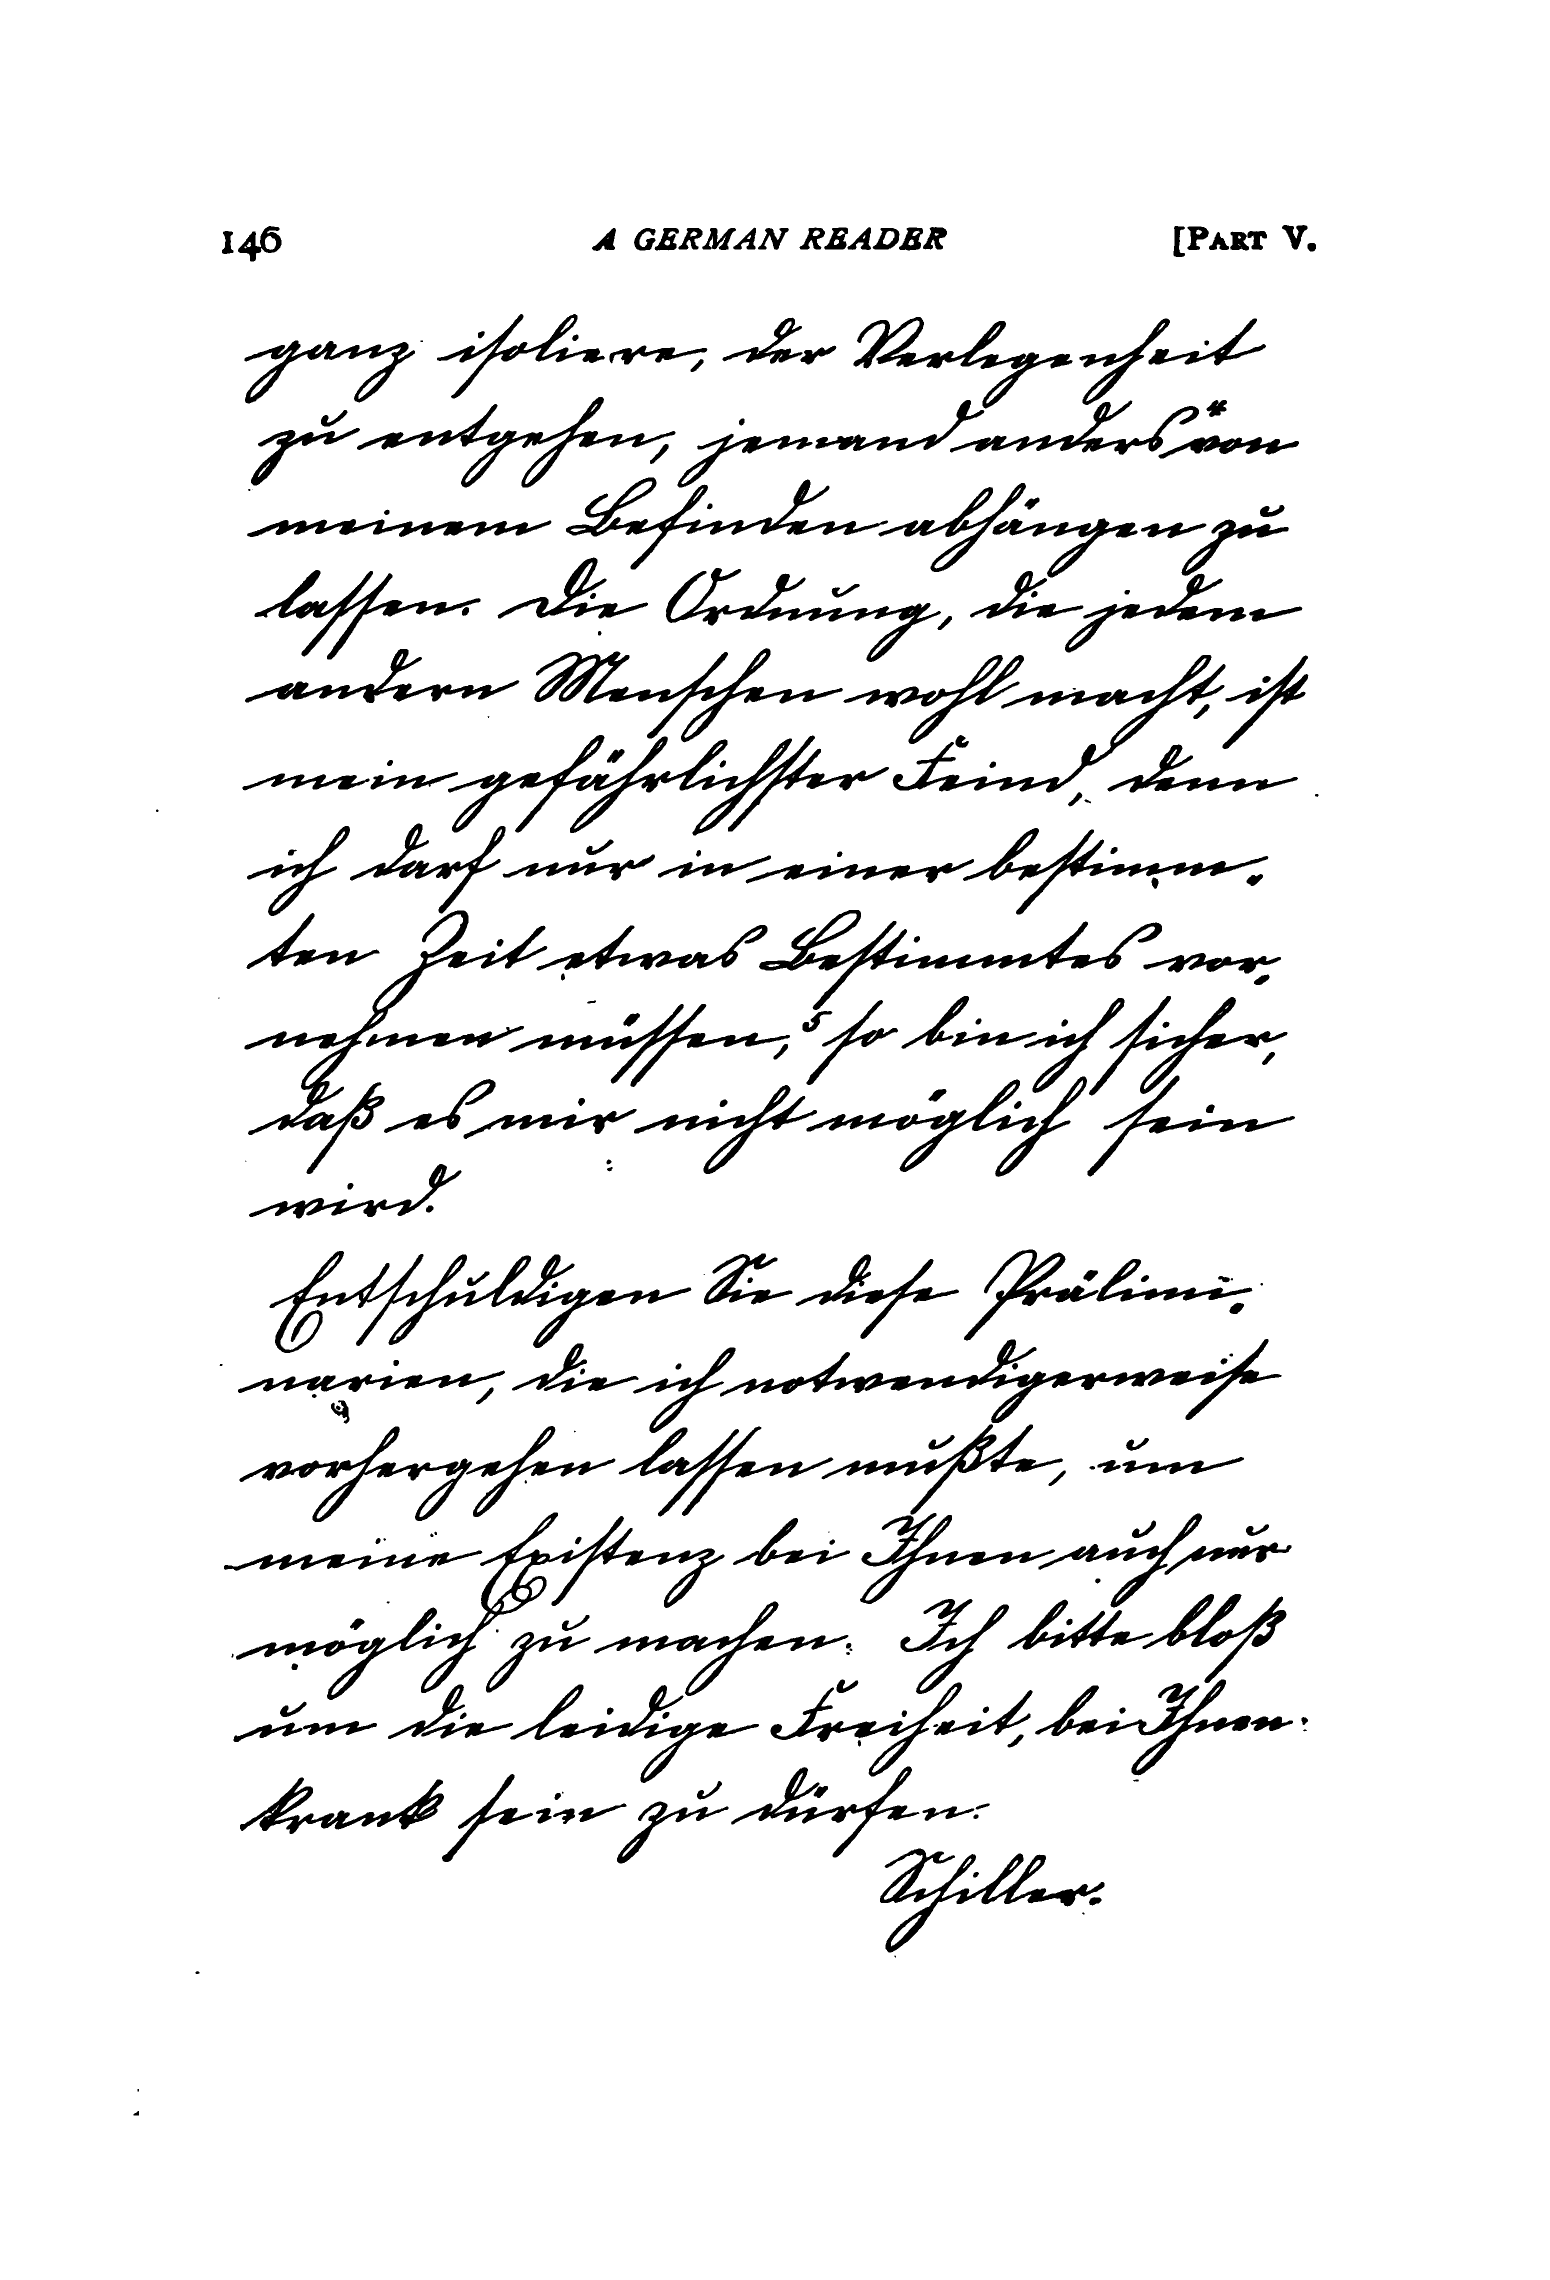 146 A GERMAN READER [PART V.
ganz isoliere, der Verlegenheit
zu entgehen, jemand anders* von
meinem Befinden abhängen zu
lassen. Die Ordnung, die jedem
andern Menschen wohl macht, ist
mein gefährlichster Feind, denn
ich darf nur in einer bestimm-
ten Zeit etwas Bestimmtes vor-
nehmen müssen,⁵ so bin ich sicher,
daß es mir nicht möglich sein
wird.
Entschuldigen Sie diese Prälimi-
narien, die ich notwendigerweise
vorhergehen lassen mußte, um
meine Existenz bei Ihnen auch nur
möglich zu machen. Ich bitte bloß
um die leidige Freiheit, bei Ihnen
krank sein zu dürfen.
Schiller.